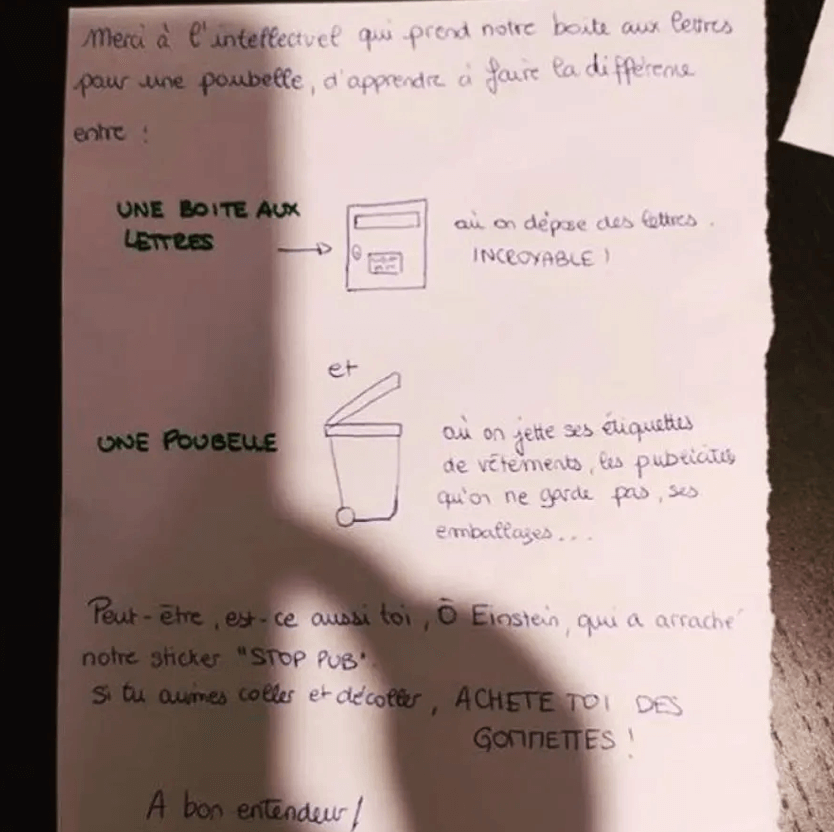 Merci à l'intellectuel qui prend notre boite aux lettres
pour une poubelle, d'apprendre à faire la différence
entre :
UNE BOITE AUX
LETTRES
où on dépose des lettres.
INCROYABLE !
et
UNE POUBELLE
où on jette ses étiquettes
de vêtements, les publicités
qu'on ne garde pas, ses
emballages...
Peut-être, est-ce aussi toi, Ô Einstein, qui a arraché
notre sticker "STOP PUB".
Si tu aimes coller et décoller, ACHETE TOI DES
GOMMETTES !
A bon entendeur !